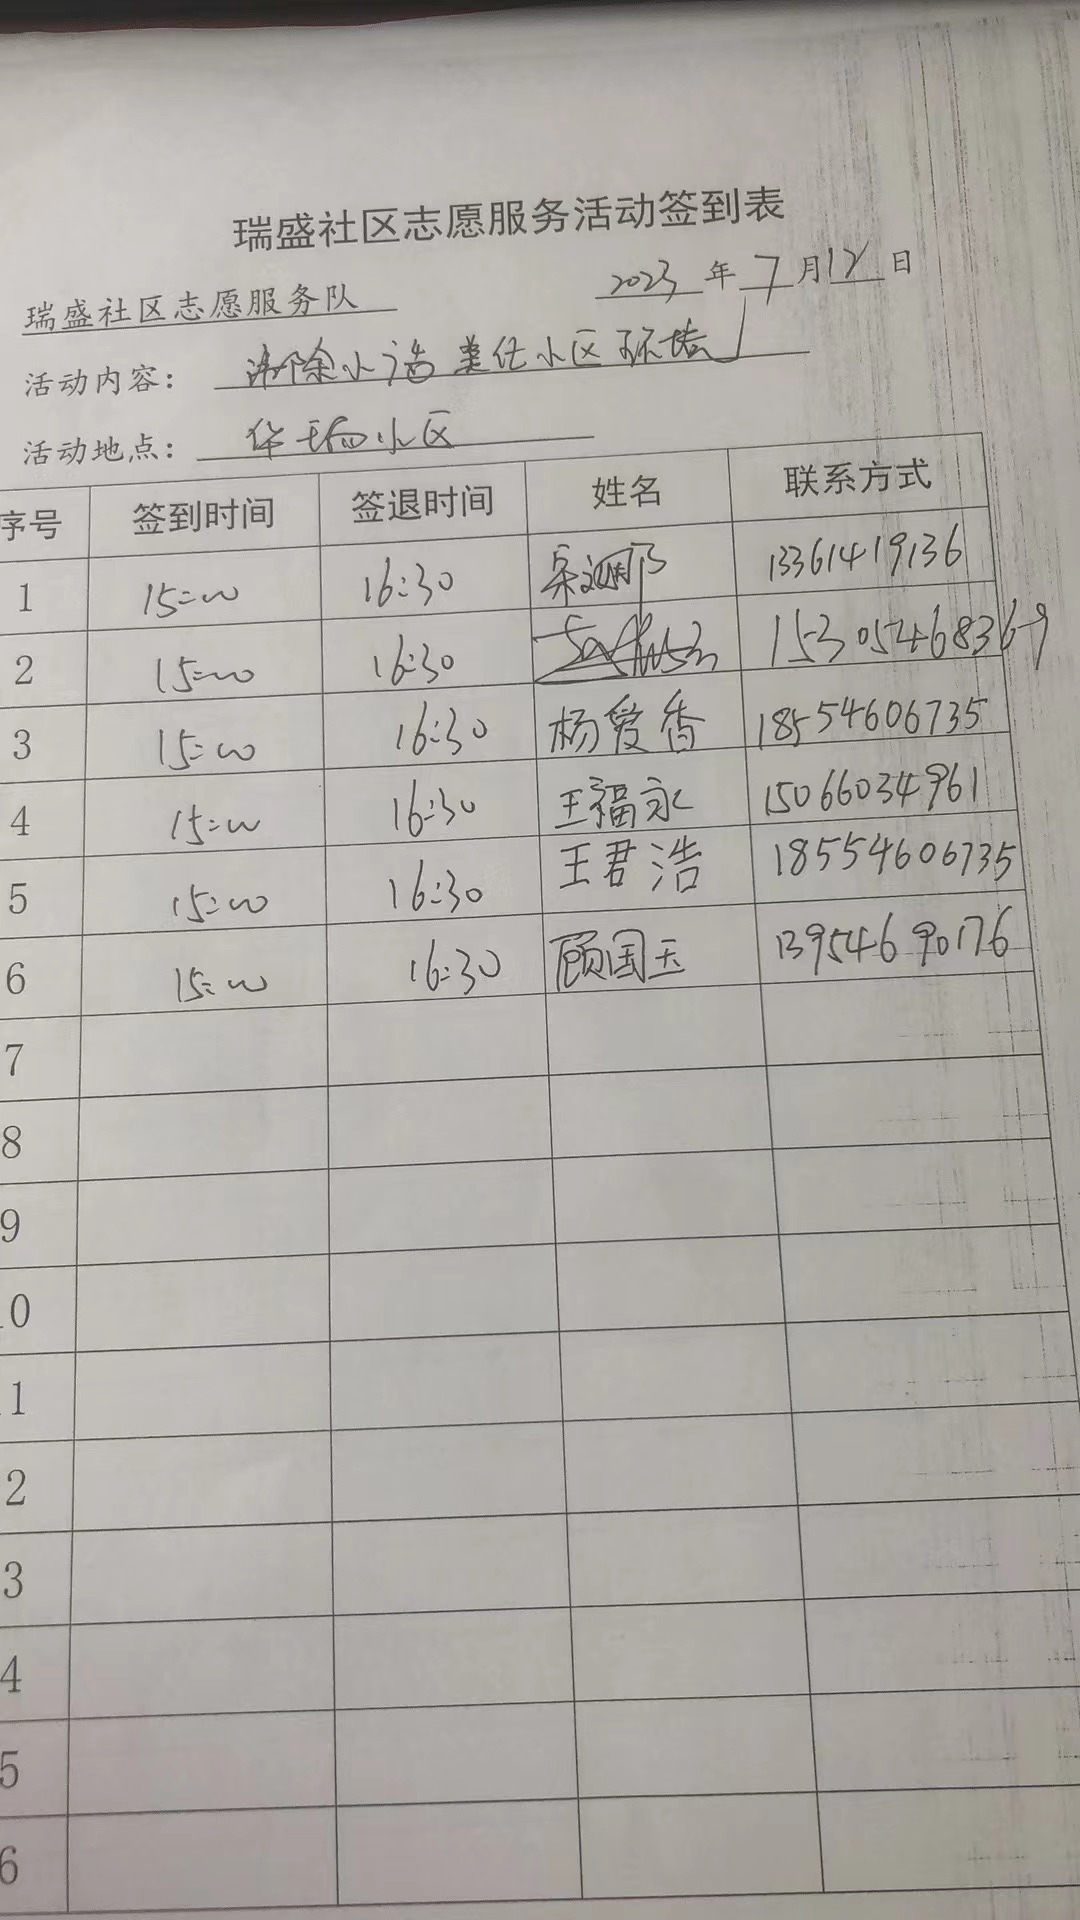 瑞盛社区志愿服务活动签到表
瑞盛社区志愿服务队 2023年7月12日
活动内容: 清除小广告 美化小区环境
活动地点: 华瑞小区
序号 签到时间 签退时间 姓名 联系方式
1 15:00 16:30 13361419136
2 15:00 16:30 15305468369
3 15:00 16:30 杨爱香 18554606735
4 15:00 16:30 王福永 15066034961
5 15:00 16:30 王君浩 18554606735
6 15:00 16:30 顾国玉 13954690176
7
8
9
0
1
2
3
4
5
6